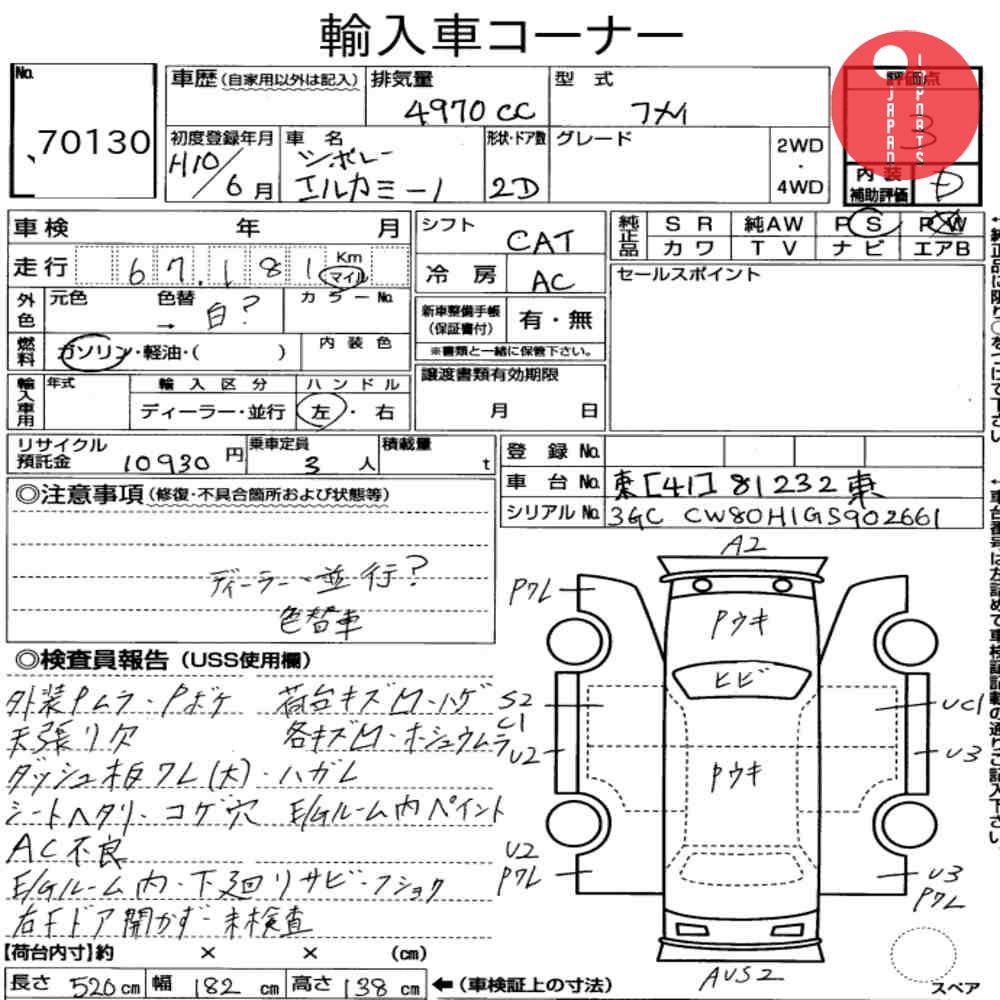 輸入車コーナー
No.
70130
車歴(自家用以外は記入)
排気量
4970 cc
型 式
フメイ
初度登録年月
H10/6月
車 名
シボレー
エルカミーノ
形状・ドア数
2D
グレード
2WD
・
4WD
評価点
3
内装
補助評価
JAPAN
IMPORTS
車検 年 月
走行 67,181 Km
マイル
外色
元色 色替 カラーNo.
→ 白?
燃料
ガソリン・軽油・( )
内装色
輸入車用
年式
輸入区分
ディーラー・並行
ハンドル
左・右
シフト
CAT
冷房
AC
新車整備手帳
(保証書付)
有・無
※書類と一緒に保管下さい。
譲渡書類有効期限
月 日
純正品
SR 純AW PS PW
カワ TV ナビ エアB
セールスポイント
リサイクル
預託金 10930円
乗車定員
3人
積載量
t
登録No.
車台No. 東[41]81232東
シリアルNo. 3GC CW80H1GS902661
◎注意事項(修復・不具合箇所および状態等)
ディーラー・並行?
色替車
◎検査員報告(USS使用欄)
外装Pムラ・Pボケ 荷台キズM・ハゲ
天張リ欠 各キズM・ホシュウムラ
ダッシュ板ワレ(大)・ハガレ
シートヘタリ・コゲ穴 E/Gルーム内ペイント
AC不良
E/Gルーム内・下廻リサビ・フショク
右Fドア開かず 未検査
【荷台内寸】約 × × (cm)
長さ 520 cm 幅 182 cm 高さ 138 cm ←(車検証上の寸法)
A2
Pワレ
Pウキ
ヒビ
S2
C1
U2
UC1
U3
Pウキ
U2
Pワレ
U3
Pワレ
AUS2
スペア